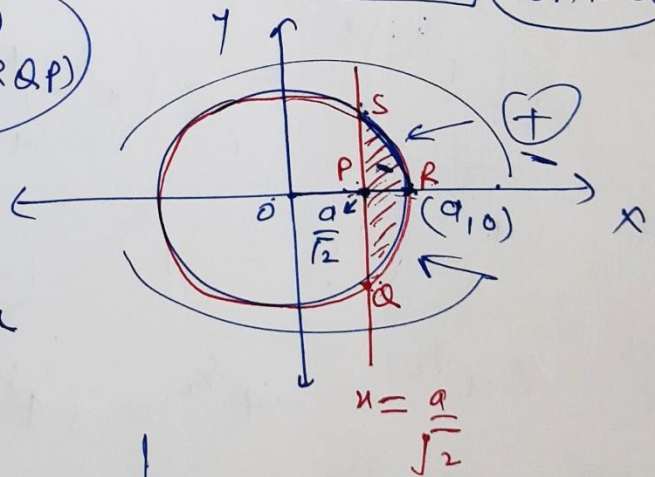 QP)
y
S
+
P
R
O
a/√2
(a,0)
x
Q
x = a/√2